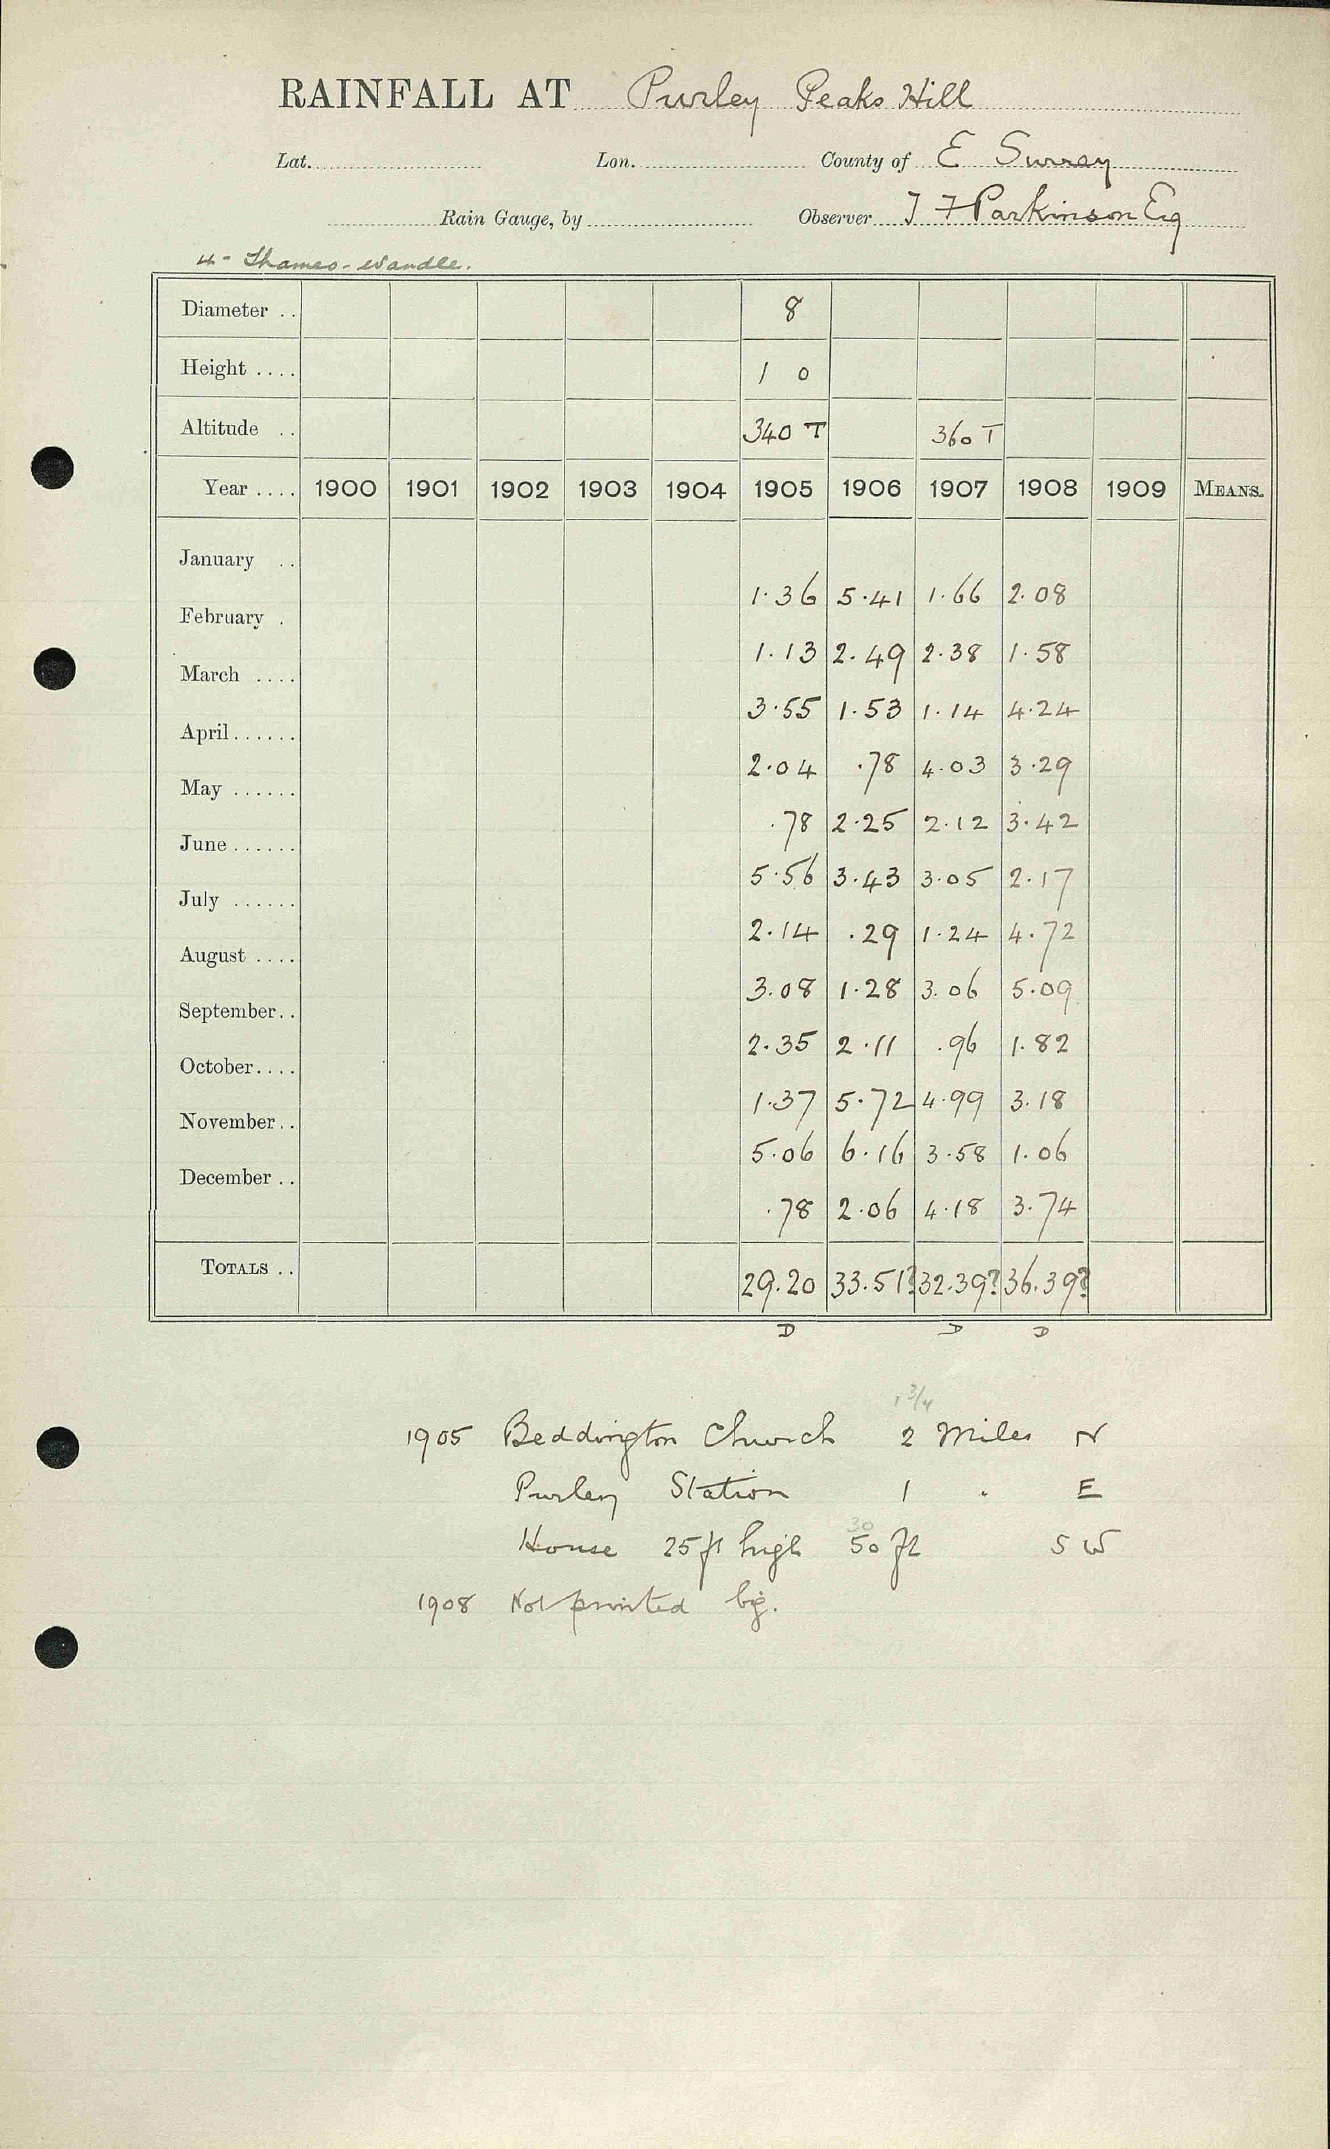 RAINFALL AT Purley Peaks Hill
Lat. Lon. County of E Surrey
Rain Gauge, by Observer J F Parkinson Esq
4 - Thames - Wandle.
Diameter .. 8
Height .... 1 0
Altitude .. 340 T 360 T
Year .... 1900 1901 1902 1903 1904 1905 1906 1907 1908 1909 MEANS.
January .. 1.36 5.41 1.66 2.08
February . 1.13 2.49 2.38 1.58
March .... 3.55 1.53 1.14 4.24
April...... 2.04 .78 4.03 3.29
May ...... .78 2.25 2.12 3.42
June ...... 5.56 3.43 3.05 2.17
July ...... 2.14 .29 1.24 4.72
August .... 3.08 1.28 3.06 5.09
September.. 2.35 2.11 .96 1.82
October.... 1.37 5.72 4.99 3.18
November.. 5.06 6.16 3.58 1.06
December .. .78 2.06 4.18 3.74
TOTALS .. 29.20 33.51? 32.39? 36.39?
D D D
1 3/4
1905 Beddington Church 2 Miles N
Purley Station 1 " E
30
House 25 ft high 50 ft SW
1908 Not printed big.